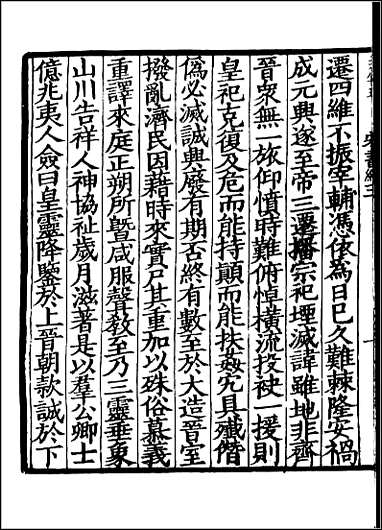 宋書紀三
遷四維不振宰輔憑依爲日已久難棘隆安禍
成元興遂至帝三遷播宗祀堙滅諱雖地非齊
晉衆無一旅仰憤時難俯悼橫流投袂一援則
皇祀克復及危而能持顛而能扶姦宄具殲僭
僞必滅誠興廢有期否終有數至於大造晉室
撥亂濟民因藉時來實尸其重加以殊俗慕義
重譯來庭正朔所曁咸服聲敎至乃三靈垂象
山川告祥人神協祉歲月滋著是以羣公卿士
億兆夷人僉曰皇靈降鑒於上晉朝款誠於下